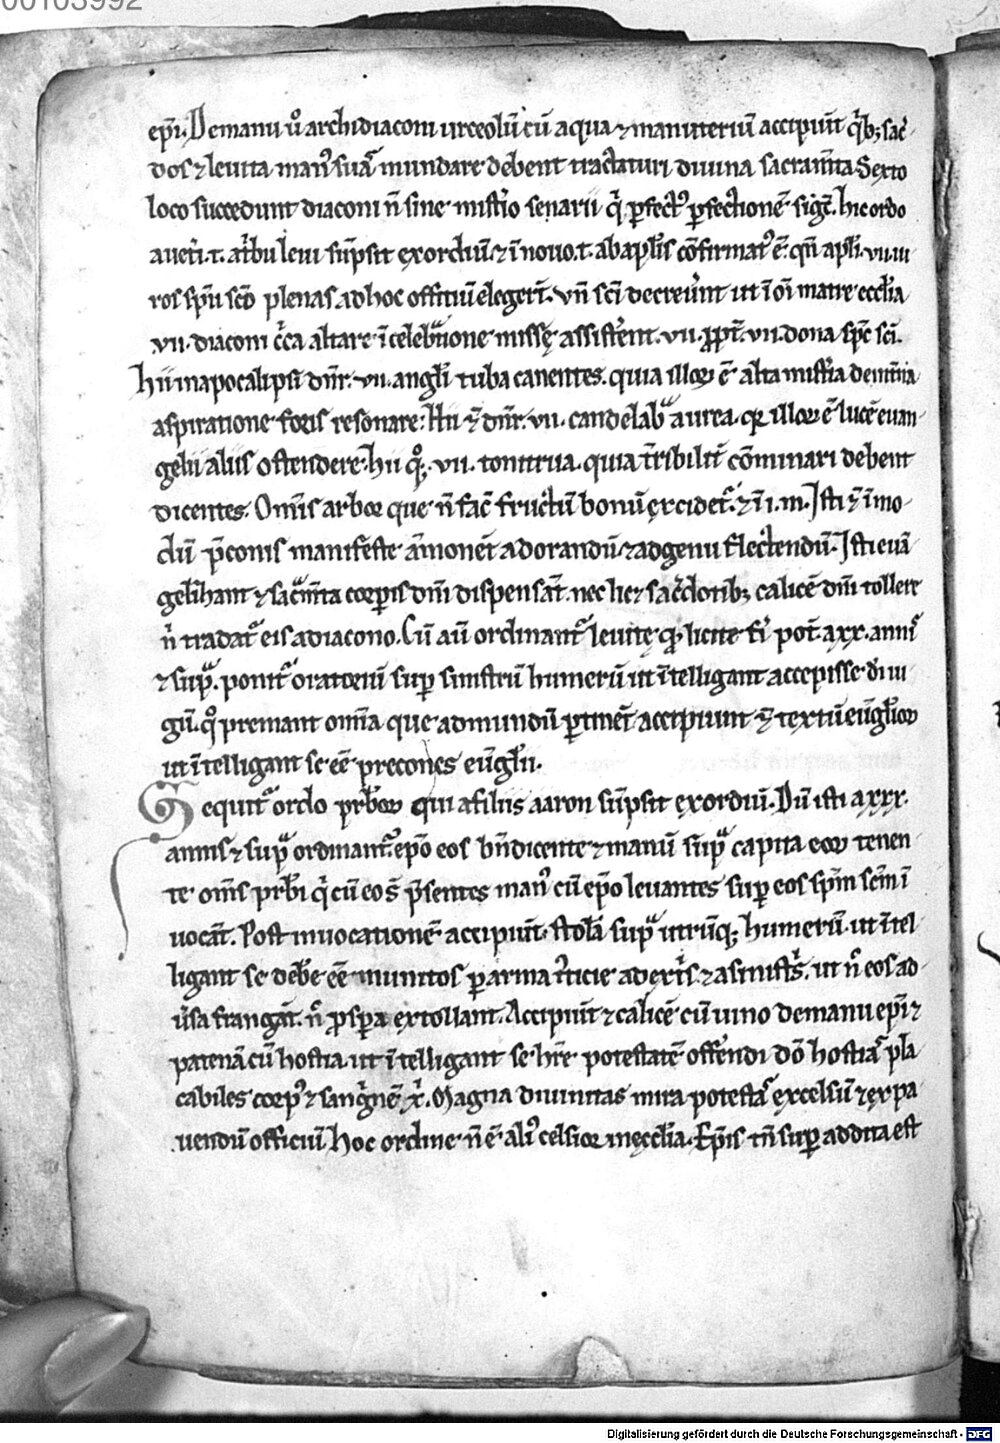 00103992
ep̅i. De manu u͛o archidiaconi urceolu̅ cu̅ aqua ⁊ manuteriu̅ accipiu̅t q͛b; sac͛
dos ⁊ leuita man᷒ suā mundare debent tractaturi diuina sacram̅ta Sexto
loco succedunt diaconi n̅ sine mist͛io senarii q͛ p̲fect᷒ p̲fectione̅ sig̅t. hic ordo
auet͛i. t. at͛bu leui su̅psit exordiu̅. ⁊ i̅ nouo. t. ab apl̅is co̅firmat᷒ e̅. qn̅ apl̅i. vii. ui
ros sp̅u sc̅o plenas ad hoc offitiu̅ elegeri̅t. Vn̅ sc̅i decreu͛nt ut i̅ oi̅ matre eccl̅ia
vii. diaconi c͛ca altare i̅ celeb͛tione missę assist͛ent. vii. ꝓpt͛. vii. dona sp̅c sc̅i.
hii in apocalipsi dn̅r. vii. angl̅i tuba canentes. quia illoꝝ e̅ alta mist͛ia de intima
aspiratione foris resonare. Hii ⁊ dn̅r. vii. candelabͣ aurea. qr illoꝝ e̅ luce̅ euan
gelii aliis ostendere. hii q͛;. vii. tonitrua. quia t͛ribilit͛ co̅minari debent
dicentes. Om̅is arbor que n̅ fac̅ fructu̅ bonu̅ excidet͛. ⁊ i̅ i. m. Isti ⁊ i̅ mo
du̅ p̅conis manifeste a̅mone̅t adorandu̅ ⁊ ad genu flectendu̅. Isti eua̅
gelizant ⁊ sac͛m̅ta corp̲is dn̅i dispensa̅t. nec licet sac͛dotib; calice̅ dn̅i tollere
n̅ tradat͛ eis a diacono. Cu̅ au̅ ordinant͛ leuitę q͛ licite fi͛ pot̅. a xx. anni᷒
⁊ supͣ. ponit͛ oratoriu̅ sup̲ sinistru̅ humeru̅ ut i̅telligant accepisse d̅i iu
gu̅. q͛o premant om̅ia que ad mundu̅ p̲tine̅t accipiunt ⁊ textu̅ eu̅gl̅ioꝝ
ut i̅telligant se ee̅ precones eu̅gl̅ii.
Sequit͛ ordo pr̅bꝝ qui a filiis aaron su̅psit exordiu̅. Du̅ isti a xxx.
annis ⁊ supͣ ordinant͛. ep̅o eos bn̅dicente ⁊ manu̅ supͣ capita eoꝝ tenen
te om̅s pr̅bi q͛ cu̅ eo s̅ p̅sentes man᷒ cu̅ ep̅o leuantes sup̲ eos sp̅m sc̅m i̅
uoca̅t. Post inuocatione̅ accipiu̅t stola̅ supͣ utru̅q; humeru̅. ut i̅tel
ligant se deb͛e ee̅ munitos p̲ arma iusticie a dext͛s ⁊ a sinist͛s. ut n̅ eos ad
u͛sa franga̅t. n̅ ꝓsp̲a extollant. Accipiu̅t ⁊ calice̅ cu̅ uino de manu ep̅i ⁊
patena̅ cu̅ hostia. ut i̅telligant se h͛re potestate̅ offe͛ndi d̅o hostia̅ pla
cabiles corp᷒ ⁊ sang͛ne̅ x͛. Magna diuinitas mira potesta͛ excelsu̅ ⁊ expa
uendu̅ officiu̅ Hoc ordine n̅ e̅ ali᷒ celsior in ęccl̅ia. Ep̅is tn̅ sup̲ addita est
Digitalisierung gefördert durch die Deutsche Forschungsgemeinschaft - DFG